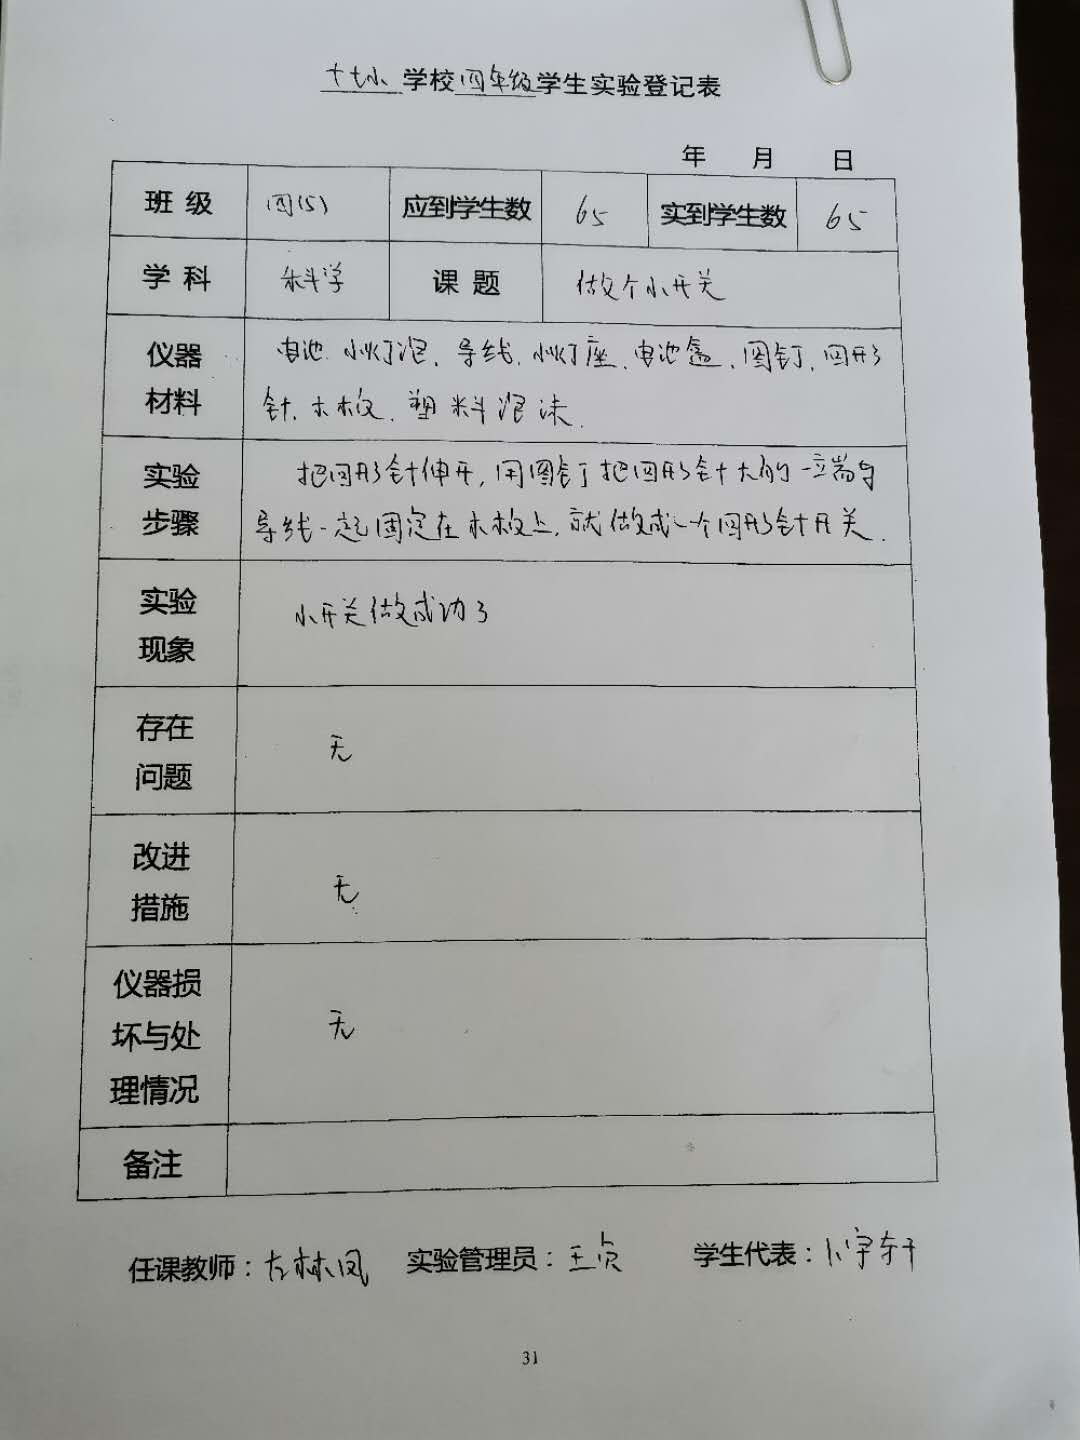 十七小 学校 四年级 学生实验登记表
年 月 日
班 级 四(5) 应到学生数 65 实到学生数 65
学 科 科学 课 题 做个小开关
仪器材料 电池、小灯泡、导线、小灯座、电池盒、图钉、回形
针、木板、塑料泡沫.
实验步骤 把回形针伸开,用图钉把回形针大的一端与
导线一起固定在木板上,就做成一个回形针开关.
实验现象 小开关做成功了
存在问题 无
改进措施 无
仪器损坏与处理情况 无
备注
任课教师:左林凤 实验管理员:王贞 学生代表:卜宇轩
31